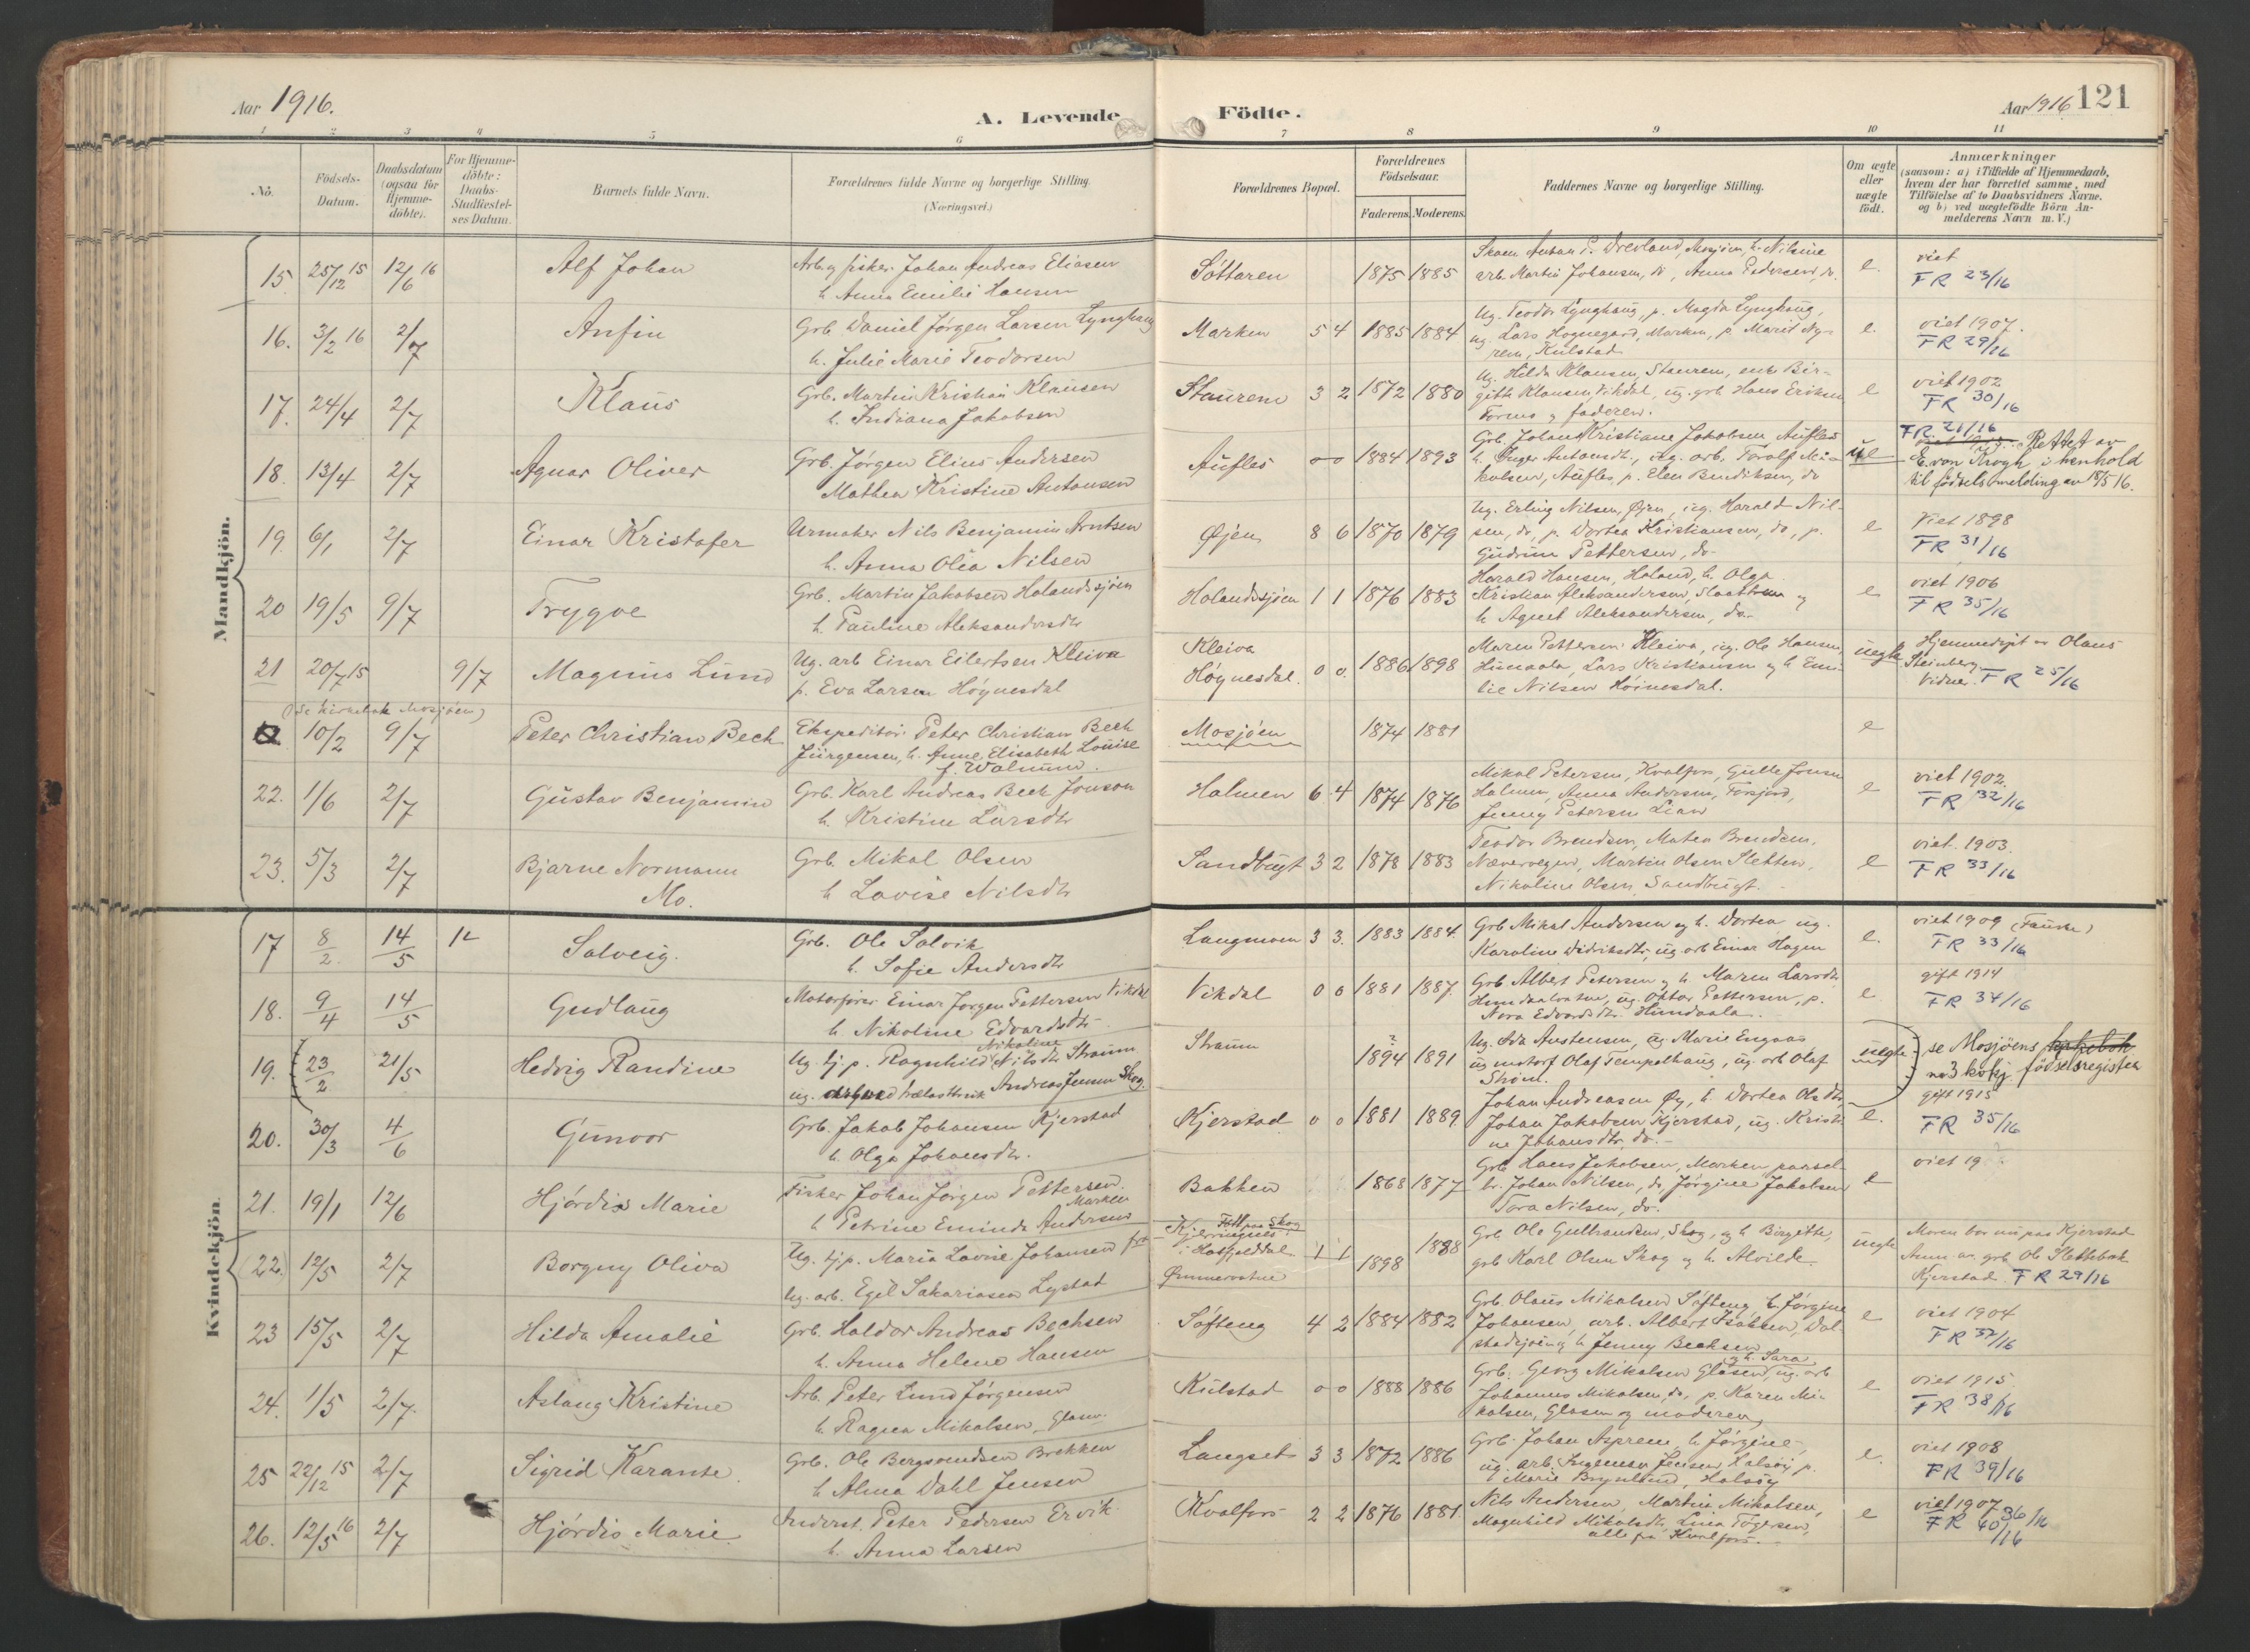 Aar 1916.
A. Levende
Födte.
Aar 1916
121
1 2 3 4 5 6 7 8 9 10 11
No.
Födsels-
Datum.
Daabsdatum
(ogsaa for
Hjemme-
döbte).
For Hjemme-
döbte:
Daabs-
Stadfæstel-
ses Datum.
Barnets fulde Navn.
Forældrenes fulde Navne og borgerlige Stilling.
(Næringsvei.)
Forældrenes Bopæl.
Forældrenes
Födselsaar.
Faderens.
Moderens.
Faddernes Navne og borgerlige Stilling.
Om ægte
eller
uægte
födt.
Anmærkninger
(saasom: a) i Tilfælde af Hjemmedaab,
hvem der har forrettet samme, med
Tilföielse af to Daabsvidners Navne.
og b) ved uægtefödte Börn An-
melderens Navn m. V.)
Mandkjön.
15. 25/12 15 12/6 16 Alf Johan
Arb. og fisker Johan Andreas Eliasen
h. Anna Emilie Hansen
Søttaren 1875 1885
Anton P. Drevland, Mosjøen, h. Nilsine
arb. Martin Johansen, do, Anna Pedersen, do.
e.
viet
FR 23/16
16. 3/2 16 2/7 Anfin
Grb. Daniel Jørgen Larsen Lynghaug
h. Julie Marie Teodorsen
Marken 5 4 1885 1884
Ug. Teodor Lynghaug, p. Magda Lynghaug,
ug. Lars Hognegard, Marken, p. Marit Ny-
rem, Kulstad
e.
viet 1907.
FR 29/16
17. 24/4 2/7 Klaus
Grb. Martin Kristian Klausen
h. Indiana Jakobsen
Staurem 3 2 1872 1880
Ug. Hilda Klausen, Staurem, enk Bir-
gith Klausen, Vikdal, ug. grb. Hans Eriksen
Formo og faderen.
e
viet 1902
FR 30/16
18. 13/4 2/7 Agnar Oliver
Grb. Jørgen Elius Andersen
Mathea Kristine Antonsen
Aufles o o 1884 1893
Grb. Johan Kristiane Jakobsen, Aufles
h. Inger Antonsdt., ug. arb. Torolf Mi-
kalsen, Aufles, p. Elen Bendiksen, do
FR 21/16
Rettet av
E. von Krogh i henhold
til fødselsmelding av 18/5 16.
19. 6/1 2/7 Einar Kristofer
Urmaker Nils Benjamin Arntsen
h. Anna Olea Nilsen
Øjen 8 6 1870 1879
Ug. Erling Nilsen, Øjen, ug. Harald Nil-
sen, do, p. Dortea Kristiansen, do, p.
Gudrun Pettersen, do.
e
Viet 1898
FR 31/16
20 19/5 9/7 Trygve
Grb. Martin Jakobsen Holandsjøen
h. Pauline Aleksandersdtr
Holandsjøen 1 1 1876 1883
Harald Hansen, Holand, h. Olga
Kristian Aleksandersen, og
h Agnet Aleksandersen, do.
e
viet 1906
FR 35/16
21 20/7 15 9/7 Magnus Lund
Ug. arb Einar Eilertsen Kleiva
p. Eva Larsen Høgnesdal
Kleiva
Høgnesdal. 0 0. 1886 1898
Maren Pettersen Kleiva, ug. Ole Hansen,
Hundaala, Lars Kristiansen og h Emi-
lie Nilsen Hoinesdal.
uegte
Hjemmedøpt av Olaus
Steinberg.
Vidner. FR 25/16
(Se kirkebok Mosjøen)
10/2 9/7 Peter Christian Bech
Ekspeditør Peter Christian Bech
Jürgensen, h. Anne Elisabeth Louise
f. Walnum.
Mosjøen 1874 1881 e
22. 1/6 2/7 Gustav Benjamin
Grb. Karl Andreas Bech Jonson
h. Kristine Larsdtr
Halmen 6 4 1874 1876
Mikal Petersen, Kvalfors, Gulle Jonsen
Halmen, Anna Andersen, Forsjord,
Jenny Petersen Lian
e
viet 1902.
FR 32/16
23. 5/3 2/7 Bjarne Normann
Mo.
Grb. Mikal Olsen
h Lovise Nilsdtr
Sandbugt 3 2 1878 1883
Teodor Brendsen, Matea Brendsen,
Nævervegen, Martin Olsen Sletten,
Nikoline Olsen, Sandbugt.
e
viet. 1903.
FR 33/16
Kvindekjön.
17 8/2. 14/5 Solveig.
Grb. Ole Solvik
h. Sofie Andersdtr
Langmoen 3 3. 1883 1884.
Grb Mikal Andersen og h. Dortea ug.
Karoline Didriksdtr, ug arb Einar Hagen
e.
viet 1909 (Fauske)
FR 33/16
18. 9/4 14/5 Gudlaug
Motorfører Einar Jørgen Pettersen Vikdal
h. Nikoline Edvardsdtr
Vikdal 0 0 1881 1887.
Grb Albert Petersen og h Maren Larsdtr.
Hundaalvatne, ug. Oktav Pettersen, p.
Nora Edvardsdtr. Hundaala.
e
gift 1914
FR 34/16
19. 23/2 21/5 Hedvig Randine
Nikoline
Ug. tj. p. Ragnhild Nilsdtr Straum
ug. Andreas Jensen Skog
Straum ? 1894 1891
Ug. Ida Austensen, ug Marie Engaas
ug motorf Olaf Tempelhaug, ug. arb Olaf
Strøm.
uegte
se Mosjøens kirkebok
no 3 kvkj. fødselsregister
20. 30/3 4/6 Gunvor
Grb. Jakob Johansen Kjerstad
h. Olga Johansdtr.
Kjerstad 0 0 1881 1889
Johan Andreasen Øy, h. Dortea Olsdtr.
Johan Jakobsen Kjerstad, ug. Kristi-
ne Johansdtr. do.
e.
gift 1915
FR 35/16
21. 19/1 12/6 Hjørdis Marie
Fisker Johan Jørgen Pettersen
Marken
h Petrine Eminde Andersen
Bakken 1868 1877
Grb Hans Jakobsen, Marken
Johan Nilsen, do, Jørgine Jakobsen
Tora Nilsen, do.
e
viet 19
(22.) 12/5 2/7 Borgny Oliva
Ug. tj.p. Maria Lovise Johansen fra
Ug. arb. Egil Sakariasen Lystad
Født paa Skog
i Hatfjelddal. 1 1
1898 1898
Grb Ole Gulbrandsen, Skog, og h Birgitte,
grb Karl Olsen Skog og h. Alvilde
uegte
Moren bor nu paa Kjerstad
Anm av grb Ole Slettebak
Kjerstad. FR 29/16
23 15/5 2/7 Hilda Amalie
Grb. Haldor Andreas Bechsen
h. Anna Helene Hansen
Søfteng 4 2 1884 1882
Grb. Olaus Mikalsen Søfteng, h. Jørgine
Johansen, arb. Albert Isaksen, Dol-
stadsjøen, h Jenny Bechsen
e
viet 1904
FR 37/16
24. 1/5 2/7. Aslaug Kristine
Arb. Peter Lund Jørgensen
h. Ragna Mikalsen, Glasen.
Kulstad o o 1888 1886
og h. Sara
Grb. Georg Mikalsen Glasen, ug. arb
Johannes Mikalsen, do, p. Karen Mi-
kalsen, Glasen og moderen
e
viet 1915.
FR 38/16
25 22/12 15 2/7 Sigrid Karante
Grb. Ole Bergsvendsen Brekken
h Alma Dahl Jensen
Langset 3 3 1872 1886
Grb. Johan Asprem, h Jørgine,
ug. arb. Ingeman Jensen Halsøy p.
Marie Brynlund, Halsøy
e.
viet 1908
FR 39/16
26. 12/5 16 2/7 Hjørdis Marie
Peter Pedersen Ervik
h. Anna Larsen
Kvalfors 2 2 1876 1881.
Nils Andersen, Martin Mikalsen,
Magnhild Mikalsdtr, Lina Tøgersen,
alle på Kvalfors.
e
viet 1907
36/16
FR 40/16